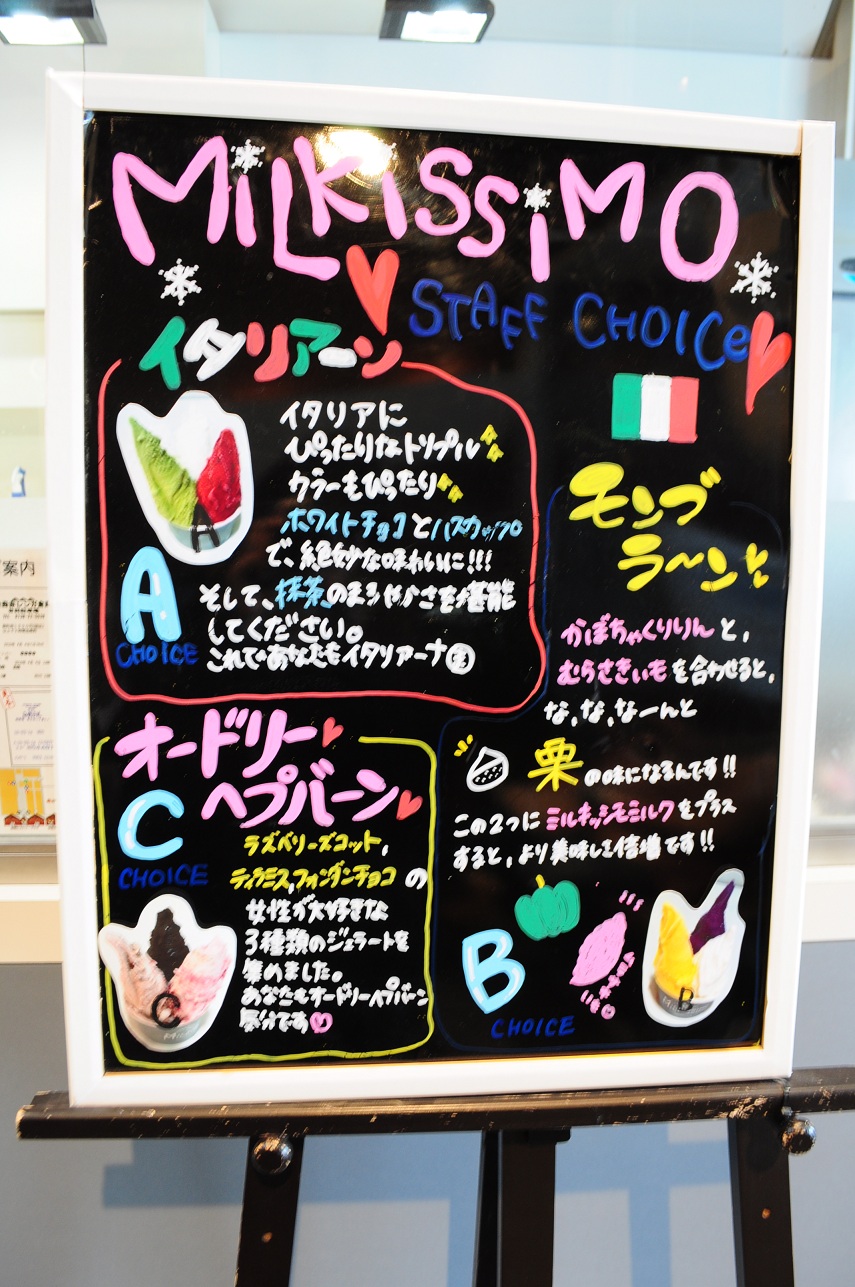 MiLKiSSiMO
STAFF CHOICe
イタリアーン
イタリアに
ぴったりなトリプル
カラーもぴったり
ホワイトチョコとハスカップ
で、絶妙な味わいに!!!
そして、抹茶のまろやかさを堪能
してください。
これであなたもイタリアーナ
A
CHOICE
モンブ
ラ〜ン
かぼちゃくりりんと、
むらさきいもを合わせると、
な,な,なーんと
栗の味になるんです!!
この2つにミルキッシモミルクをプラス
すると,より美味しさ倍増です!!
B
CHOICE
オードリー
ヘプバーン
C
CHOICE
ラズベリーズコット,
ティラミス,フォンダンチョコの
女性が大好きな
3種類のジェラートを
集めました。
あなたもオードリーヘプバーン
気分です
案内